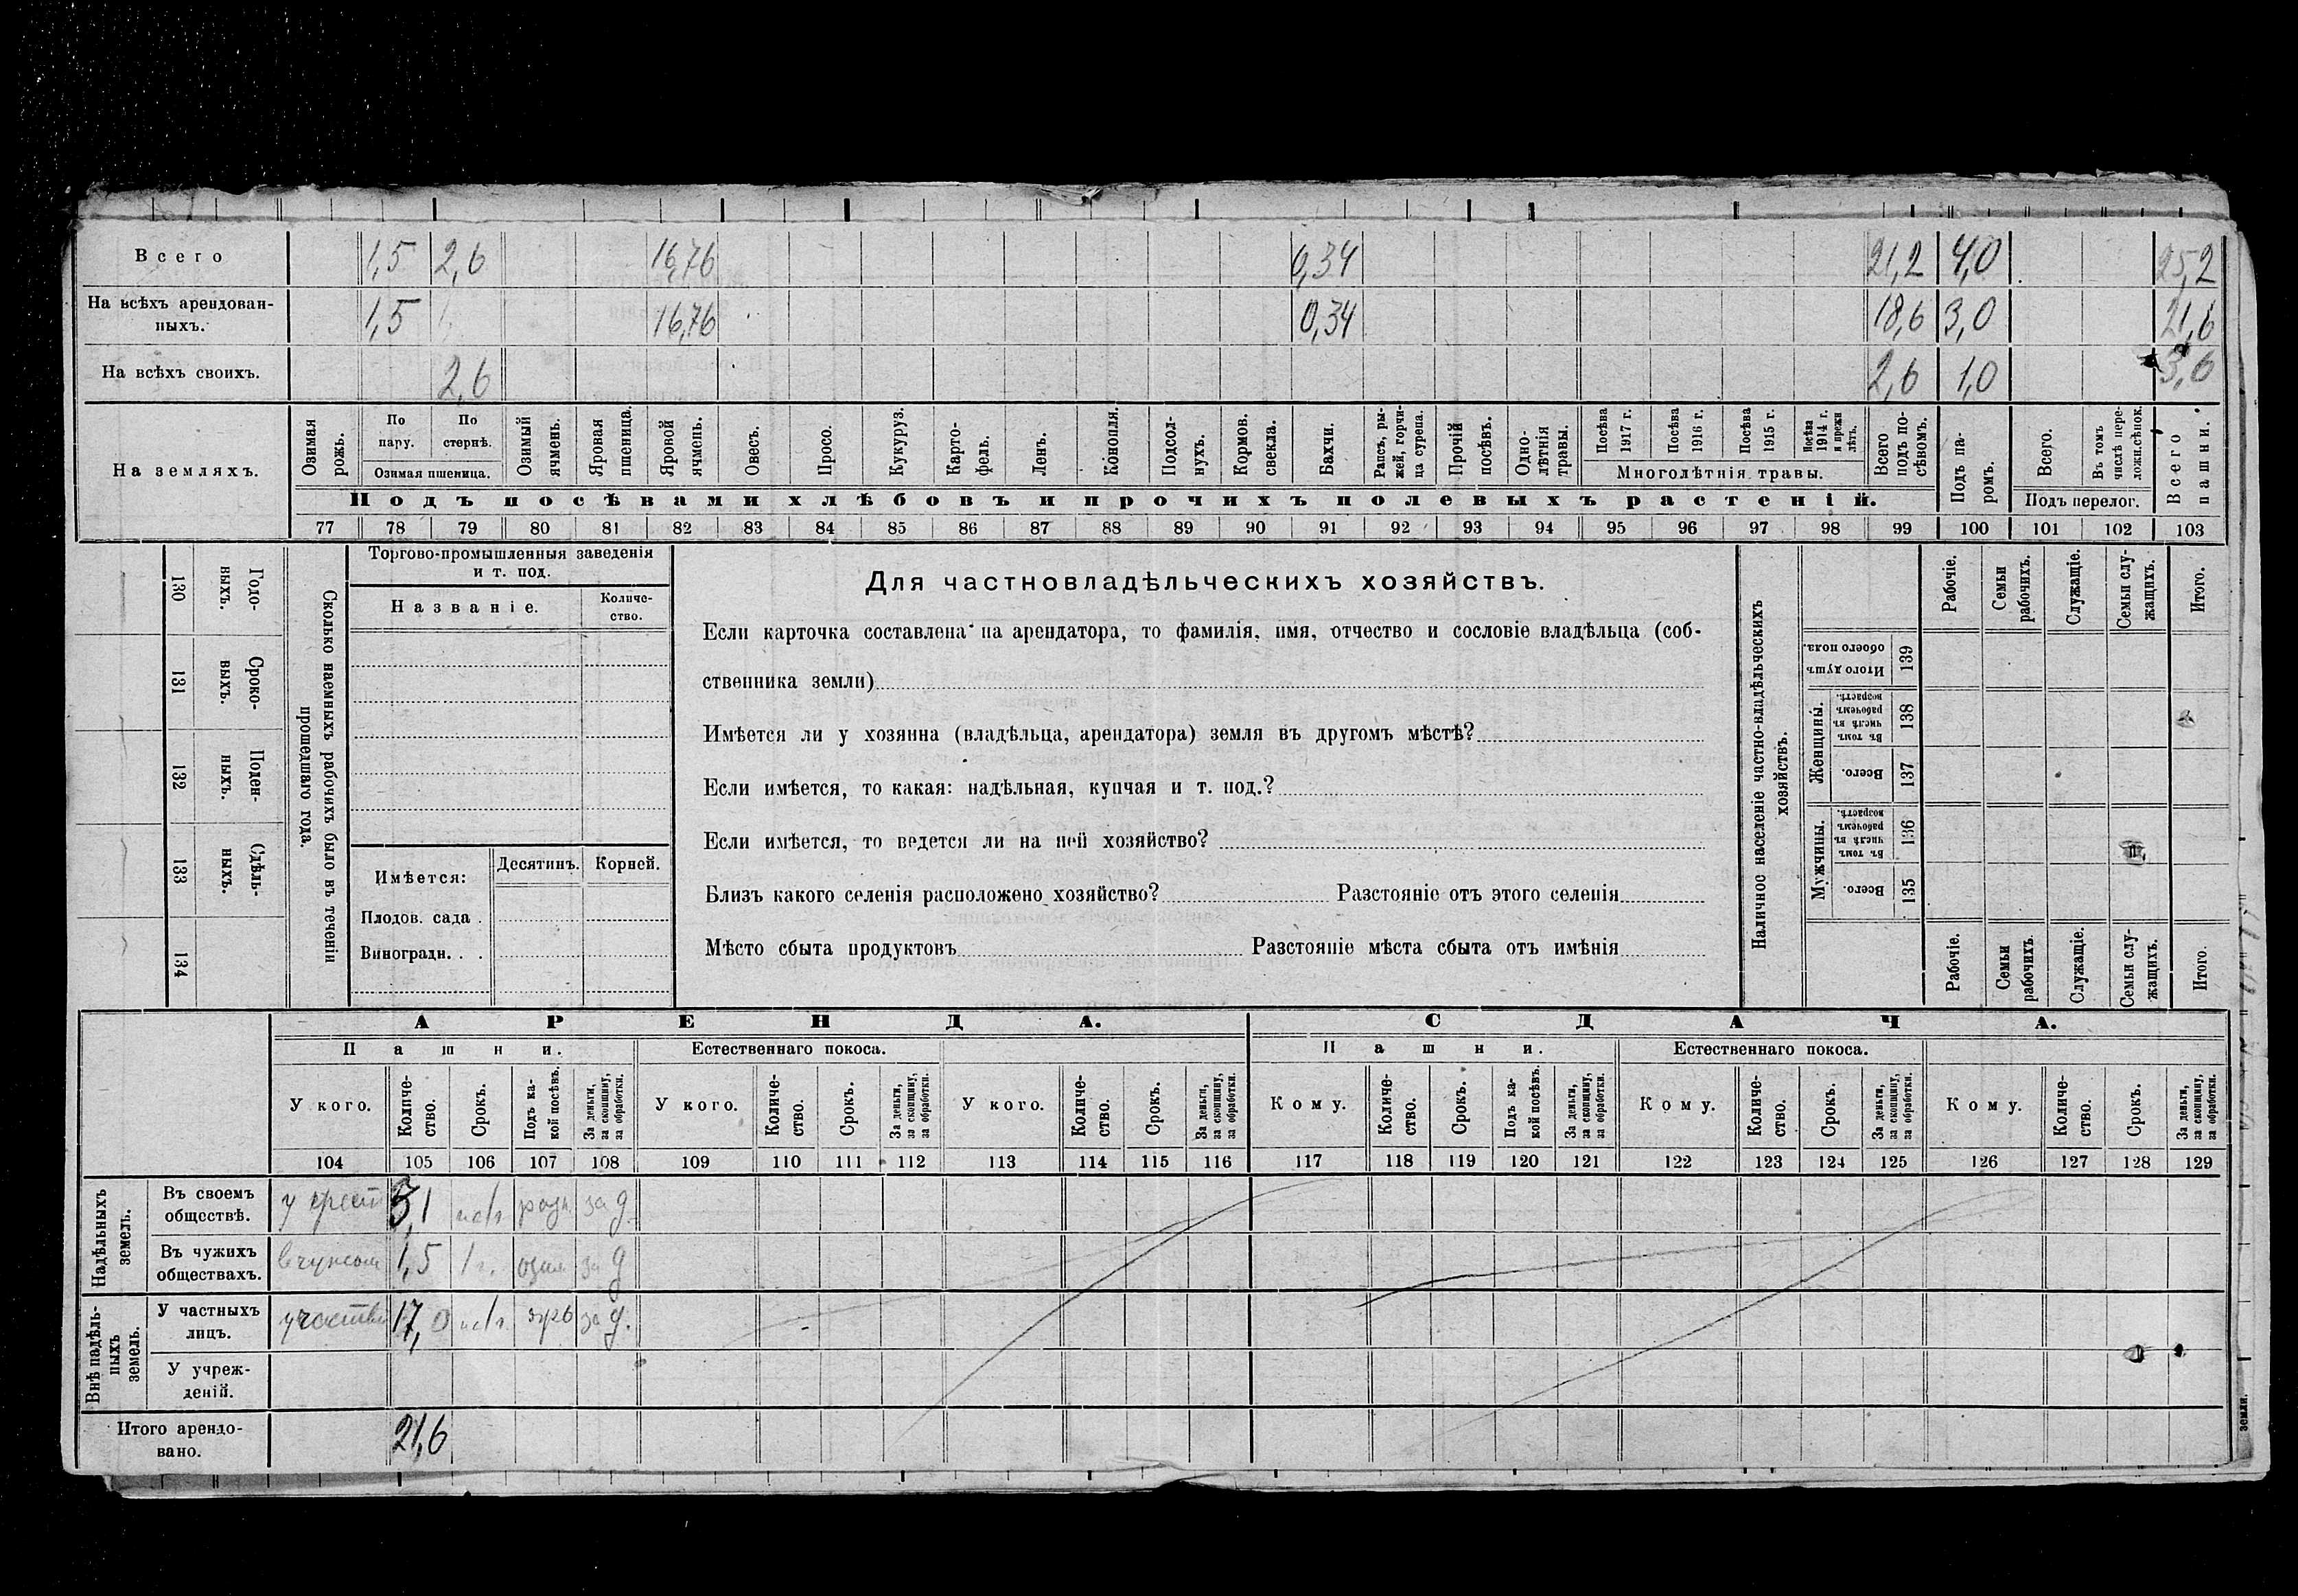 Всего 1,5 2,6 16,76 0,34 21,2 4,0 25,2
На всѣхъ арендован-
ныхъ. 1,5 16,76 0,34 18,6 3,0 21,6
На всѣхъ своихъ. 2,6 2,6 1,0 3,6
На земляхъ.
Озимая рожь.
По пару.
По стернѣ.
Озимая пшеница.
Озимый ячмень.
Яровая пшеница.
Яровой ячмень.
Овесъ.
Просо.
Кукуруз.
Карто-
фель.
Ленъ.
Конопля.
Подсол-
нухъ.
Кормов. свекла.
Бахчи.
Рапсъ, ры-
жей, горчи-
ца сурепа.
Прочій посѣвъ.
Одно-
лѣтнія травы.
Посѣва 1917 г.
Посѣва 1916 г.
Посѣва 1915 г.
Посѣва 1914 г. и прежн лѣтъ.
Многолѣтнія травы.
Всего подъ по-
сѣвомъ.
Подъ посѣвами хлѣбовъ и прочихъ полевыхъ растеній.
Подъ па-
ромъ.
Всего.
Въ томъ числѣ пере-
ложн.сѣнок.
Подъ перелог.
Всего пашни.
77 78 79 80 81 82 83 84 85 86 87 88 89 90 91 92 93 94 95 96 97 98 99 100 101 102 103
130 Годо-
выхъ.
131 Сроко-
выхъ.
132 Поден-
ныхъ.
133 Сдѣль-
ныхъ.
134
Сколько наемныхъ рабочихъ было въ теченіи
прошедшаго года.
Торгово-промышленныя заведенія
и т. под.
Названіе.
Количе-
ство.
Имѣется:
Десятинъ.
Корней.
Плодов. сада .
Виноградн. . .
Для частновладѣльческихъ хозяйствъ.
Если карточка составлена на арендатора, то фамилія, имя, отчество и сословіе владѣльца (соб-
ственника земли)
Имѣется ли у хозяина (владѣльца, арендатора) земля въ другомъ мѣстѣ?
Если имѣется, то какая: надѣльная, купчая и т. под.?
Если имѣется, то ведется ли на ней хозяйство?
Близъ какого селенія расположено хозяйство? Разстояніе отъ этого селенія
Мѣсто сбыта продуктовъ Разстояніе мѣста сбыта отъ имѣнія
Наличное населеніе частно-владѣльческихъ
хозяйствъ.
Рабочіе.
Семьи рабочихъ.
Служащіе.
Семьи слу-
жащихъ.
Итого.
Итого душъ обоего пола. 139
Женщины.
Въ томъ числѣ въ рабочемъ возрастѣ. 138
Всего. 137
Мужчины.
Въ томъ числѣ въ рабочемъ возрастѣ. 136
Всего. 135
Рабочіе.
Семьи рабочихъ.
Служащіе.
Семьи слу-
жащихъ.
Итого.
АРЕНДА. СДАЧА.
Пашни. Естественнаго покоса. Пашни. Естественнаго покоса.
У кого.
Количе-
ство.
Срокъ.
Подъ ка-
кой посѣвъ.
За деньги, за скопщину, за обработки.
У кого.
Количе-
ство.
Срокъ.
За деньги, за скопщину, за обработки.
У кого.
Количе-
ство.
Срокъ.
За деньги, за скопщину, за обработки.
Кому.
Количе-
ство.
Срокъ.
Подъ ка-
кой посѣвъ.
За деньги, за скопщину, за обработки.
Кому.
Количе-
ство.
Срокъ.
За деньги, за скопщину, за обработки.
Кому.
Количе-
ство.
Срокъ.
За деньги, за скопщину, за обработки.
104 105 106 107 108 109 110 111 112 113 114 115 116 117 118 119 120 121 122 123 124 125 126 127 128 129
Надѣльныхъ
земель.
Въ своемъ
обществѣ. у крест 3,1 за д.
Въ чужихъ
обществахъ. 1,5 1 г. озим за д
Внѣ надѣль-
ныхъ
земель.
У частныхъ
лицъ. 17,0 яръ за д.
У учреж-
деній.
Итого арендо-
вано. 21,6
земли.